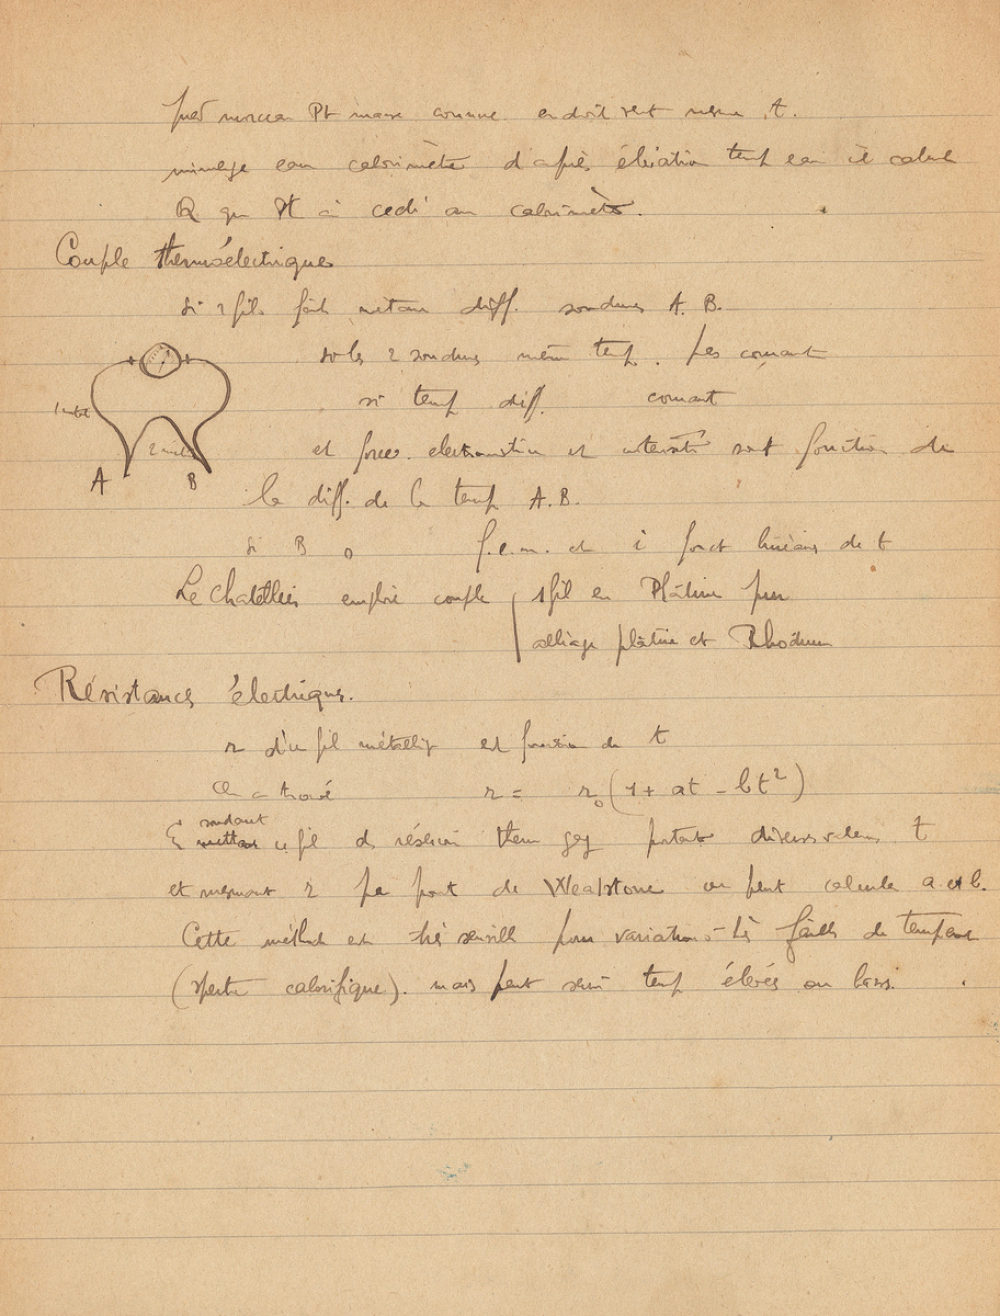 morceau Pt masse connue endroit veut t.
eau calorimètre d'après élévation temp eau il calcule
Q que Pt a cédé au calorimètre.
Couple thermoélectriques
Si 2 fils faits métaux diff. soudures A. B.
si les 2 soudures même temp. pas courant
si temp diff. courant
1 métal
2 métal
et force electromotrice et intensité sont fonction de
A B
la diff. de la temp A.B.
si B 0 f.e.m. et i fonct linéaire de t
Le Chatellier emploie couple 1 fil en Platine pur
alliage platine et Rhodium
Résistances électriques.
r d'un fil métalliq est fonction de t
On a trouvé r = r₀ (1 + at - bt²)
soudant
mettant ce fil ds réservoir therm gaz portant diverses valeurs t
et mesurant r pa pont de Weatstone on peut calculer a et b.
Cette méthode est très sensible pour variations très faibles de température
(spectre calorifique). mais peut servir temp élevés ou bass.